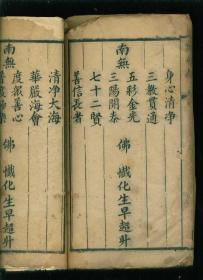 身心清净
三教貫通
五彩金光
南無 三陽開泰 佛 懺化生早超昇
七十二賢
善信長者
清淨大海
華嚴海會
南無 度報善心 佛 懺化生早超昇